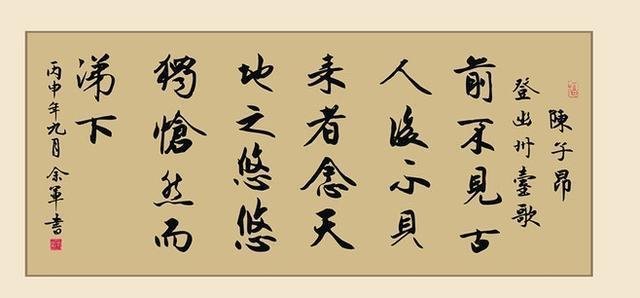 陳子昂
登幽州臺歌
前不見古
人後不見
来者念天
地之悠悠
獨愴然而
涕下
丙申年九月 余軍書